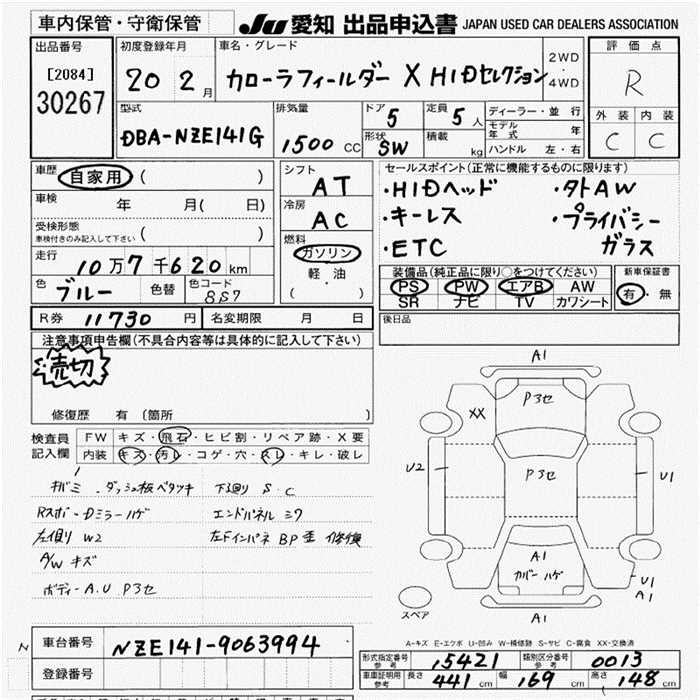 車内保管・守衛保管 JU 愛知 出品申込書 JAPAN USED CAR DEALERS ASSOCIATION
出品番号 初度登録年月 車名・グレード 評価点
[2084] 20 2月 カローラフィールダー X HIDセレクション 2WD・4WD R
30267 型式 排気量 ドア 5 定員 5人 ディーラー・並行 外装 内装
DBA-NZE141G 1500 CC 形状 SW 積載 kg モデル年式 年 C C
ハンドル 左・右
車歴 自家用 ( ) シフト AT セールスポイント(正常に機能するものに限ります)
車検 年 月( 日) 冷房 AC ・HIDヘッド ・外AW
受検形態 ( ) ・キーレス ・プライバシー
車検付きのみ記入して下さい 燃料 ガソリン ・ETC ガラス
走行 10万7千620km 軽・油
色 ブルー 色替 色コード 8S7 ( )
装備品(純正品に限り○をつけてください) 新車保証書
PS PW エアB AW 有・無
SR ナビ TV カワシート
R券 11730円 名変期限 月 日 後日品
注意事項申告欄(不具合内容等は具体的に記入して下さい)
売切
修復歴 有 〔箇所 〕
検査員 FW キズ・飛石・ヒビ割・リペア跡・X要
記入欄 内装 キズ・汚レ・コゲ・穴・スレ・キレ・破レ
キバミ . ダッシュ板ベタツキ 下廻り S.C
Rスポ-Dミラーハゲ エンドパネル ミク
左右廻り W2 左Fインパネ BP歪 修換
A/W キズ
ボディー A.U P3セ
A1
P3セ
XX
U2 P3セ U1
A1
カバーハゲ
U1
A1
スペア A1
A-キズ E-エクボ U-凹み W-補修跡 S-サビ C-腐食 XX-交換済
車台番号 NZE141-9063994
登録番号
形式指定番号 参考 15421 類別区分番号 参考 0013
車庫証明用 参考 長さ 441cm 幅 169cm 高さ 148cm